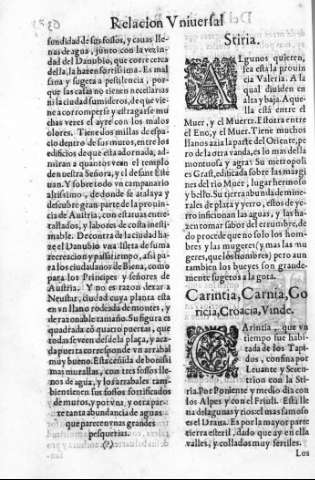 Relacion Vniuersal
fundidad de sus fossos, y cauas lle-
nas de agua, junto con la vezin-
dad del Danubio, que corre cerca
della, la hazen fortissima. Es mal
sana y sugeta a pestilencia, por-
que las casas no tienen necessarias
ni la ciudad sumideros, de que vie-
ne a corromperse y estragarse mu-
chas vezes el ayre con los malos
olores. Tiene dos millas de espa-
cio dentro de sus muros, entre los
edificios de que esta adornada, ad-
miran a quantos veen el templo
de nuestra Señora, y el de sant Este
uan. Y sobre todo vn campanario
altissimo, de donde se atalaya y
descubre gran parte de la prouin-
cia de Austria, con estatuas entre
talladas, y labores de costa inesti-
mable. De contra de la ciudad ha-
ze el Danubio vna Isleta de suma
recreacion y passatiempo, assi pa-
ra los ciudadanos de Biena, como
para los Principes y señores de
Austria. Y no es razon dexar a
Neustat, ciudad cuya planta esta
en vn llano rodeada de montes, y
de razonable tamaño. Su figura es
quadrada cõ quatro puertas, que
todas se veen desde la plaça, y aca
da puerta corresponde vn arrabal
muy bueno. Esta ceñida de bonissi
mas murallas, con tres fossos lle-
nos de agua, y los arrabales tam-
bien tienen sus fossos fortificados
de muros, y por vna, y otra par-
te tanta abundancia de aguas
que parecen vnas grandes
pesquerias.
(?)
Stiria.
ALgunos quieren,
sea esta la prouin
cia Valeria. A la
qual diuiden en
alta y baja. Aque
lla está entre el
Muer, y el Muerr. Estotra entre
el Eno, y el Muer. Tiene muchos
llanos azia la parte del Oriente, pe
ro de la otra vanda, es lo mas della
montuosa y agra. Su metropoli
es Grast, edificada sobre las margi
nes del rio Muer, lugar hermoso
y bello. Su tierra abunda de mine-
rales de plata y yerro, estos de ye-
rro inficionan las aguas, y las ha-
zen tomar sabor del errumbre, de
do procede que no solo los hom-
bres y las mugeres (y mas las mu
geres, que los hombres) pero aun
tambien los bueyes son grande-
mente sugetos a gota.
Carintia, Carnia, Go
ricia, Croacia, Vinde.
CArintia, que vn
tiempo fue habi
tada de los Tapi
dos, confina por
Leuante y Seten-
trion con la Sti-
ria. Por Poniente y medio dia con
los Alpes y con el Friuli. Esta lle
na de lagunas y rios: el mas famoso
es el Draua. Es por la mayor parte
tierra esteril, dado que ay en ella
valles, y collados muy fertiles.
Los